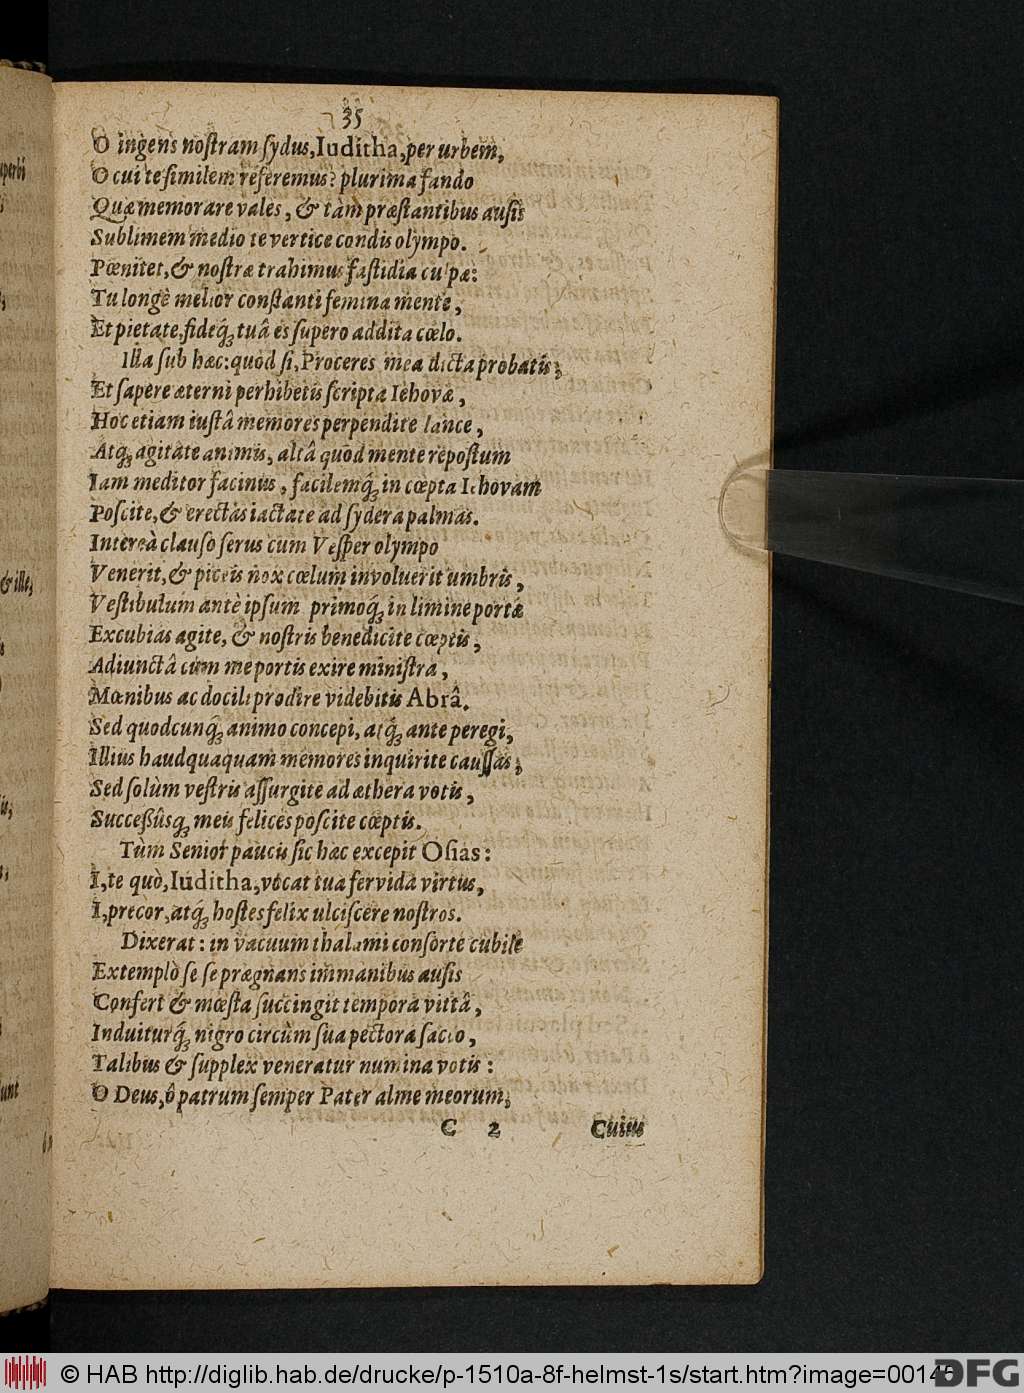 35
O ingens nostram sydus, Iuditha, per urbem,
O cui te similem referemus? plurima fando
Quæ memorare vales, & tàm præstantibus ausis
Sublimem medio te vertice condis olympo.
Pœnitet, & nostræ trahimus fastidia culpæ:
Tu longè melior constanti femina mente,
Et pietate, fideq́; tuâ es supero addita cœlo.
Illa sub hæc: quòd si, Proceres mea dicta probatis;
Et sapere æterni perhibetis scripta Iehovæ,
Hoc etiam iustâ memores perpendite lance,
Atq́; agitate animis, altâ quòd mente repostum
Iam meditor facinus, facilemq́; in cœpta Iehovam
Poscite, & erectas iactate ad sydera palmas.
Intereà clauso serus cum Vesper olympo
Venerit, & piceis nox cœlum involuerit umbris,
Vestibulum antè ipsum primoq́; in limine portæ
Excubias agite, & nostris benedicite cœptis,
Adiunctâ cùm me portis exire ministra,
Mœnibus ac docili prodire videbitis Abrâ.
Sed quodcunq́; animo concepi, atq́; ante peregi,
Illius haudquaquam memores inquirite caussas;
Sed solùm vestris assurgite ad æthera votis,
Successûsq́; meis felices poscite cœptis.
Tùm Senior paucis sic hæc excepit Osias:
I, te quò, Iuditha, vocat tua fervida virtus,
I, precor, atq́; hostes felix ulciscere nostros.
Dixerat: in vacuum thalami consorte cubile
Extemplò se se prægnans immanibus ausis
Confert & mœsta succingit tempora vittâ,
Induiturq́; nigro circùm sua pectora sacco,
Talibus & supplex veneratur numina votis:
O Deus, ô patrum semper Pater alme meorum;
C 2 Cuius
uperbi
& ille;
sunt
© HAB http://diglib.hab.de/drucke/p-1510a-8f-helmst-1s/start.htm?image=00145
DFG